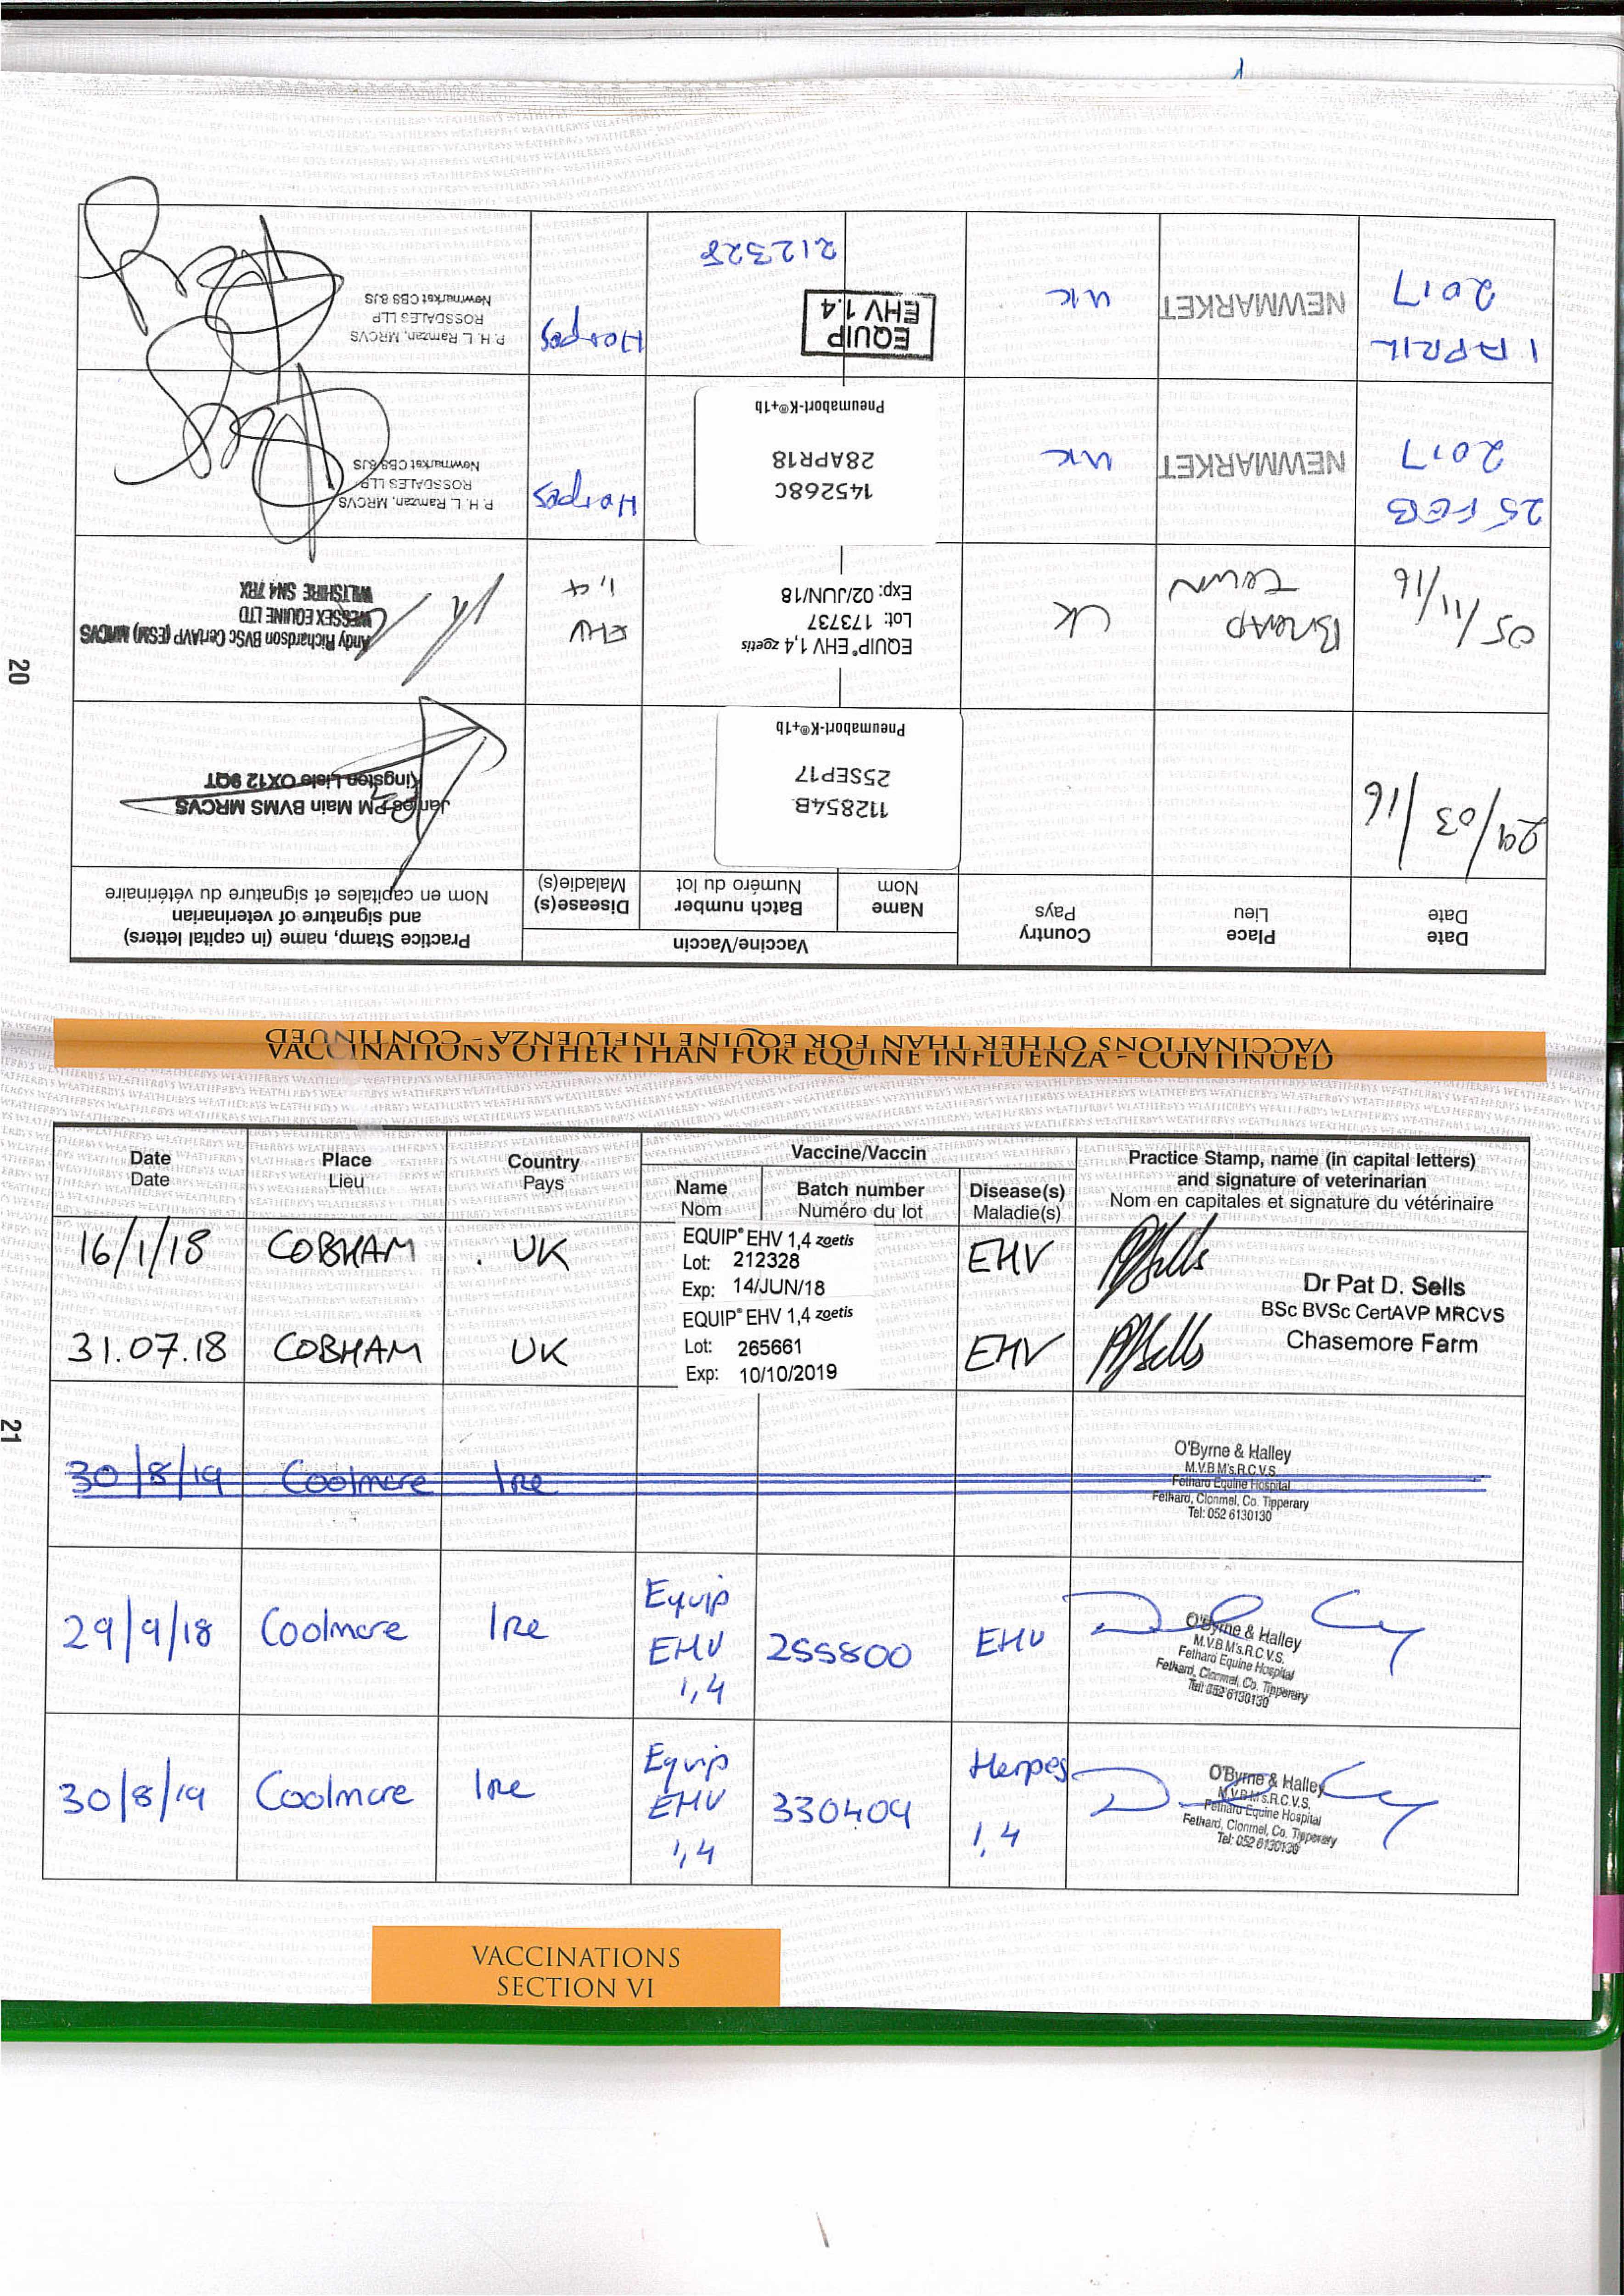 20
VACCINATIONS OTHER THAN FOR EQUINE INFLUENZA - CONTINUED
Date
Date
Place
Lieu
Country
Pays
Vaccine/Vaccin
Name
Nom
Batch number
Numéro du lot
Disease(s)
Maladie(s)
Practice Stamp, name (in capital letters)
and signature of veterinarian
Nom en capitales et signature du vétérinaire
29/03/16
112854B
25SEP17
Pneumabort-K®+1b
James PM Main BVMS MRCVS
Kingston Lisle OX12 9QT
05/11/16
UK
EQUIP® EHV 1,4 zoetis
Lot: 173737
Exp: 02/JUN/18
EHV
1,4
Andy Richardson BVSc CertAVP (ESM) MRCVS
WESSEX EQUINE LTD
WILTSHIRE SN4 7RX
25 FEB
2017
NEWMARKET
UK
145268C
28APR18
Pneumabort-K®+1b
Herpes
P. H. L. Ramzan, MRCVS
ROSSDALES LLP
Newmarket CB8 8JS
1 APRIL
2017
NEWMARKET
UK
EQUIP
EHV 1.4
212328
Herpes
P. H. L. Ramzan, MRCVS
ROSSDALES LLP
Newmarket CB8 8JS
VACCINATIONS OTHER THAN FOR EQUINE INFLUENZA - CONTINUED
Date
Date
Place
Lieu
Country
Pays
Vaccine/Vaccin
Name
Nom
Batch number
Numéro du lot
Disease(s)
Maladie(s)
Practice Stamp, name (in capital letters)
and signature of veterinarian
Nom en capitales et signature du vétérinaire
16/1/18
COBHAM
UK
EQUIP® EHV 1,4 zoetis
Lot: 212328
Exp: 14/JUN/18
EHV
31.07.18
COBHAM
UK
EQUIP® EHV 1,4 zoetis
Lot: 265661
Exp: 10/10/2019
EHV
Dr Pat D. Sells
BSc BVSc CertAVP MRCVS
Chasemore Farm
30/8/19
Coolmore
Ire
O'Byrne & Halley
M.V.B M's.R.C.V.S.
Fethard Equine Hospital
Fethard, Clonmel, Co. Tipperary
Tel: 052 6130130
29/9/18
Coolmore
Ire
Equip
EHV
1,4
255800
EHV
O'Byrne & Halley
M.V.B M's.R.C.V.S.
Fethard Equine Hospital
Fethard, Clonmel, Co. Tipperary
Tel: 052 6130130
30/8/19
Coolmore
Ire
Equip
EHV
1,4
330409
Herpes
1,4
O'Byrne & Halley
M.V.B M's.R.C.V.S.
Fethard Equine Hospital
Fethard, Clonmel, Co. Tipperary
Tel: 052 6130130
21
VACCINATIONS
SECTION VI